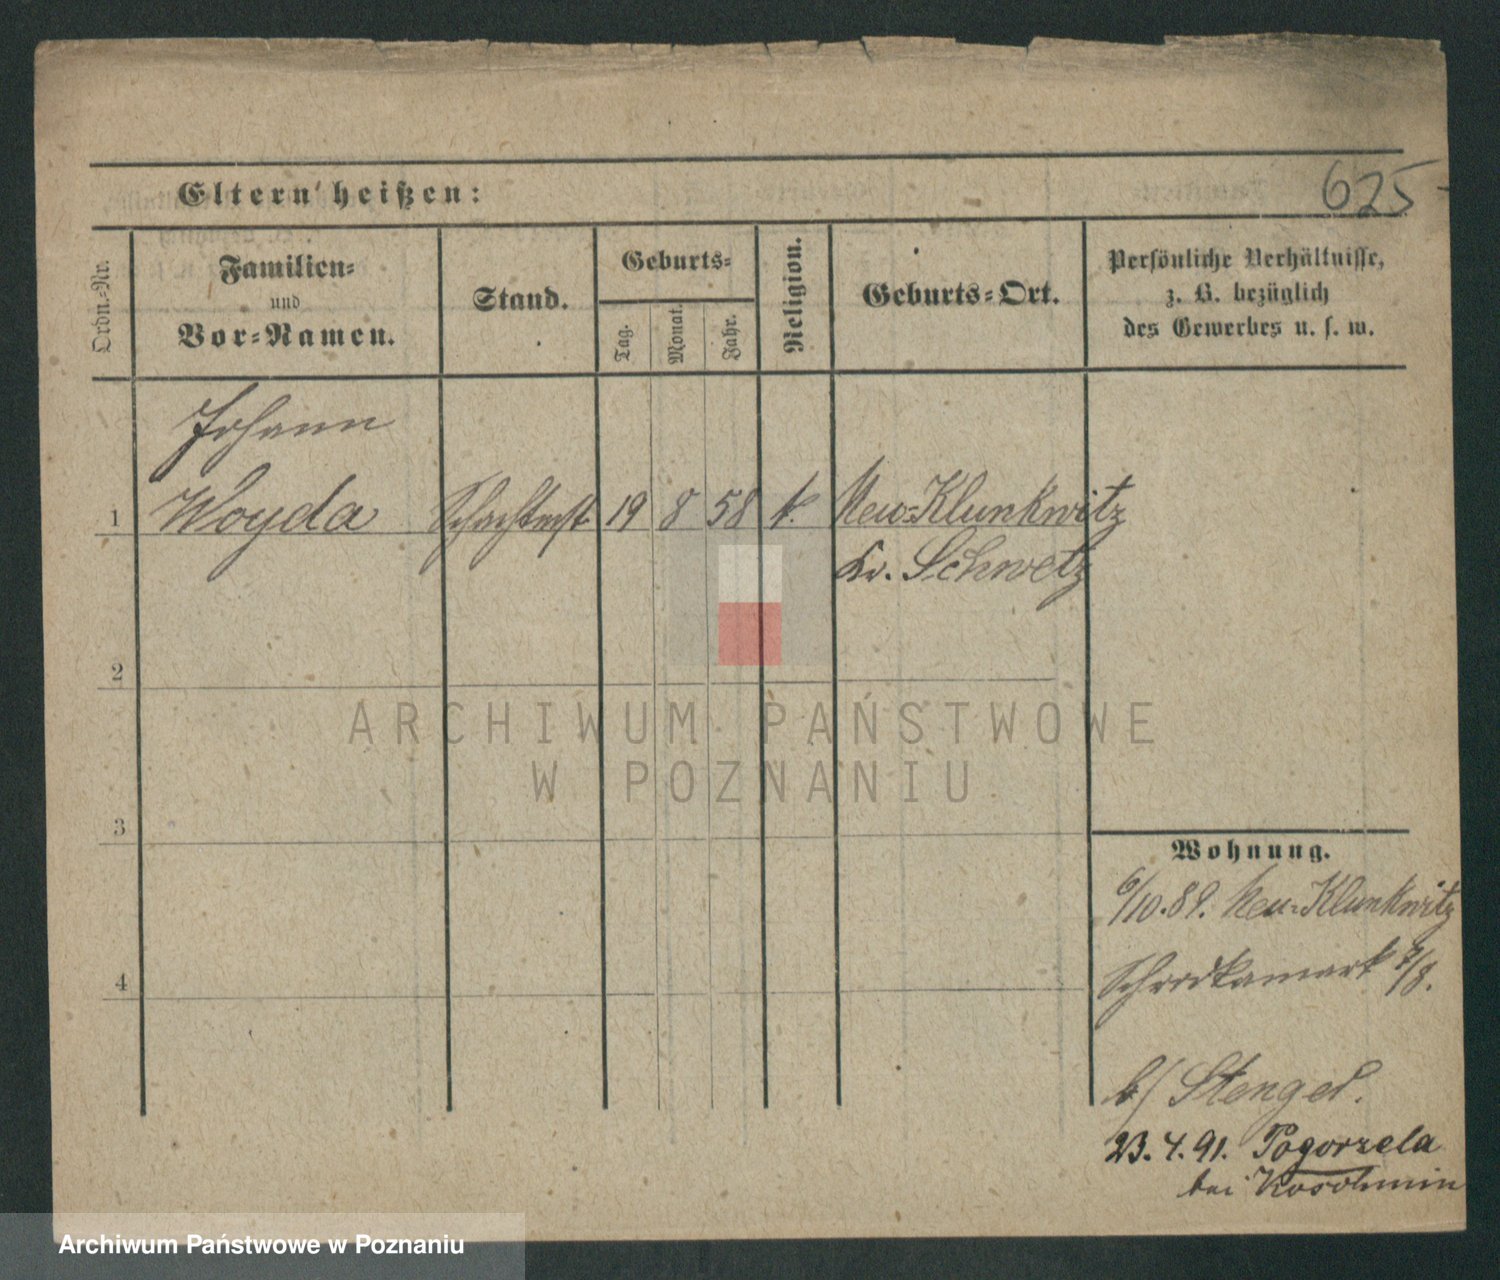 625
Eltern heißen:
Ordn.-Nr.
Familien-
und
Vor-Namen.
Stand.
Geburts-
Tag.
Monat.
Jahr.
Religion.
Geburts-Ort.
Persönliche Verhältnisse,
z. B. bezüglich
des Gewerbes u. s. w.
Johann
1 Woyda 19 8 58 k. Neu-Klunkwitz
Kr. Schwetz
2
3
4
Wohnung.
6/10.89. Neu-Klunkwitz
Schrodkamark
b/ Stengel.
23.4.91. Pogorzela
bei Koschmin
ARCHIWUM PAŃSTWOWE
W POZNANIU
Archiwum Państwowe w Poznaniu